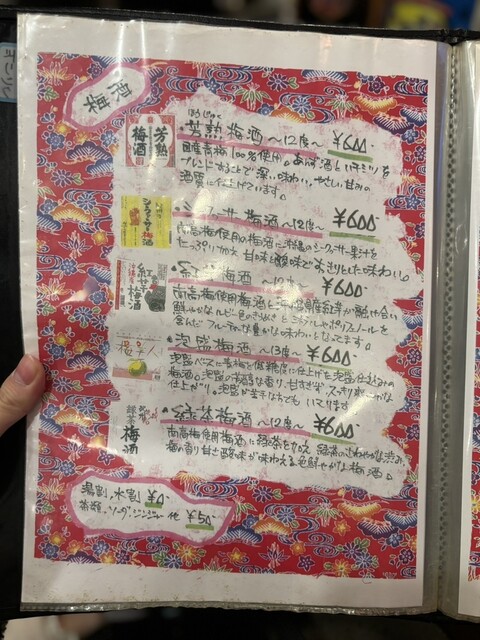 梅酒
ほうじゅく
・芳熟梅酒 〜12度〜 ¥600
国産青梅100%使用。あわ盛酒とハチミツを
ブレンドすることで深い味わい、やさしい甘みの
酒質に仕上げています。
芳熟
梅酒
・シークヮーサー梅酒 〜12度〜 ¥600
南高梅使用の梅酒に沖縄のシークヮサー果汁を
たっぷり加え 甘味と酸味であっさりとした味わい。
シークヮーサー梅酒
紅芋梅酒
・紅芋梅酒 〜10度〜 ¥600
南高梅使用梅酒と沖縄県産紅芋が融け合い
鮮やかなルビー色の
含んだ フルーティな豊かな味わいになってます。
・泡盛梅酒 〜13度〜 ¥600
泡盛ベースに青梅を低糖度に仕上げた泡盛仕込みの
梅酒。泡盛の芳醇な香り、甘すぎず、スッキリ
仕上がり。泡盛が苦手な方でも、いけます
・緑茶梅酒 〜12度〜 ¥600
南高梅使用梅酒に緑茶を加え 緑茶のさわやかな渋み、
梅の香り甘さ酸味が味わえる色鮮やかな梅酒。
緑茶
梅酒
湯割、水割 ¥0
茶類、ソーダ、ジンジャー 他 ¥50